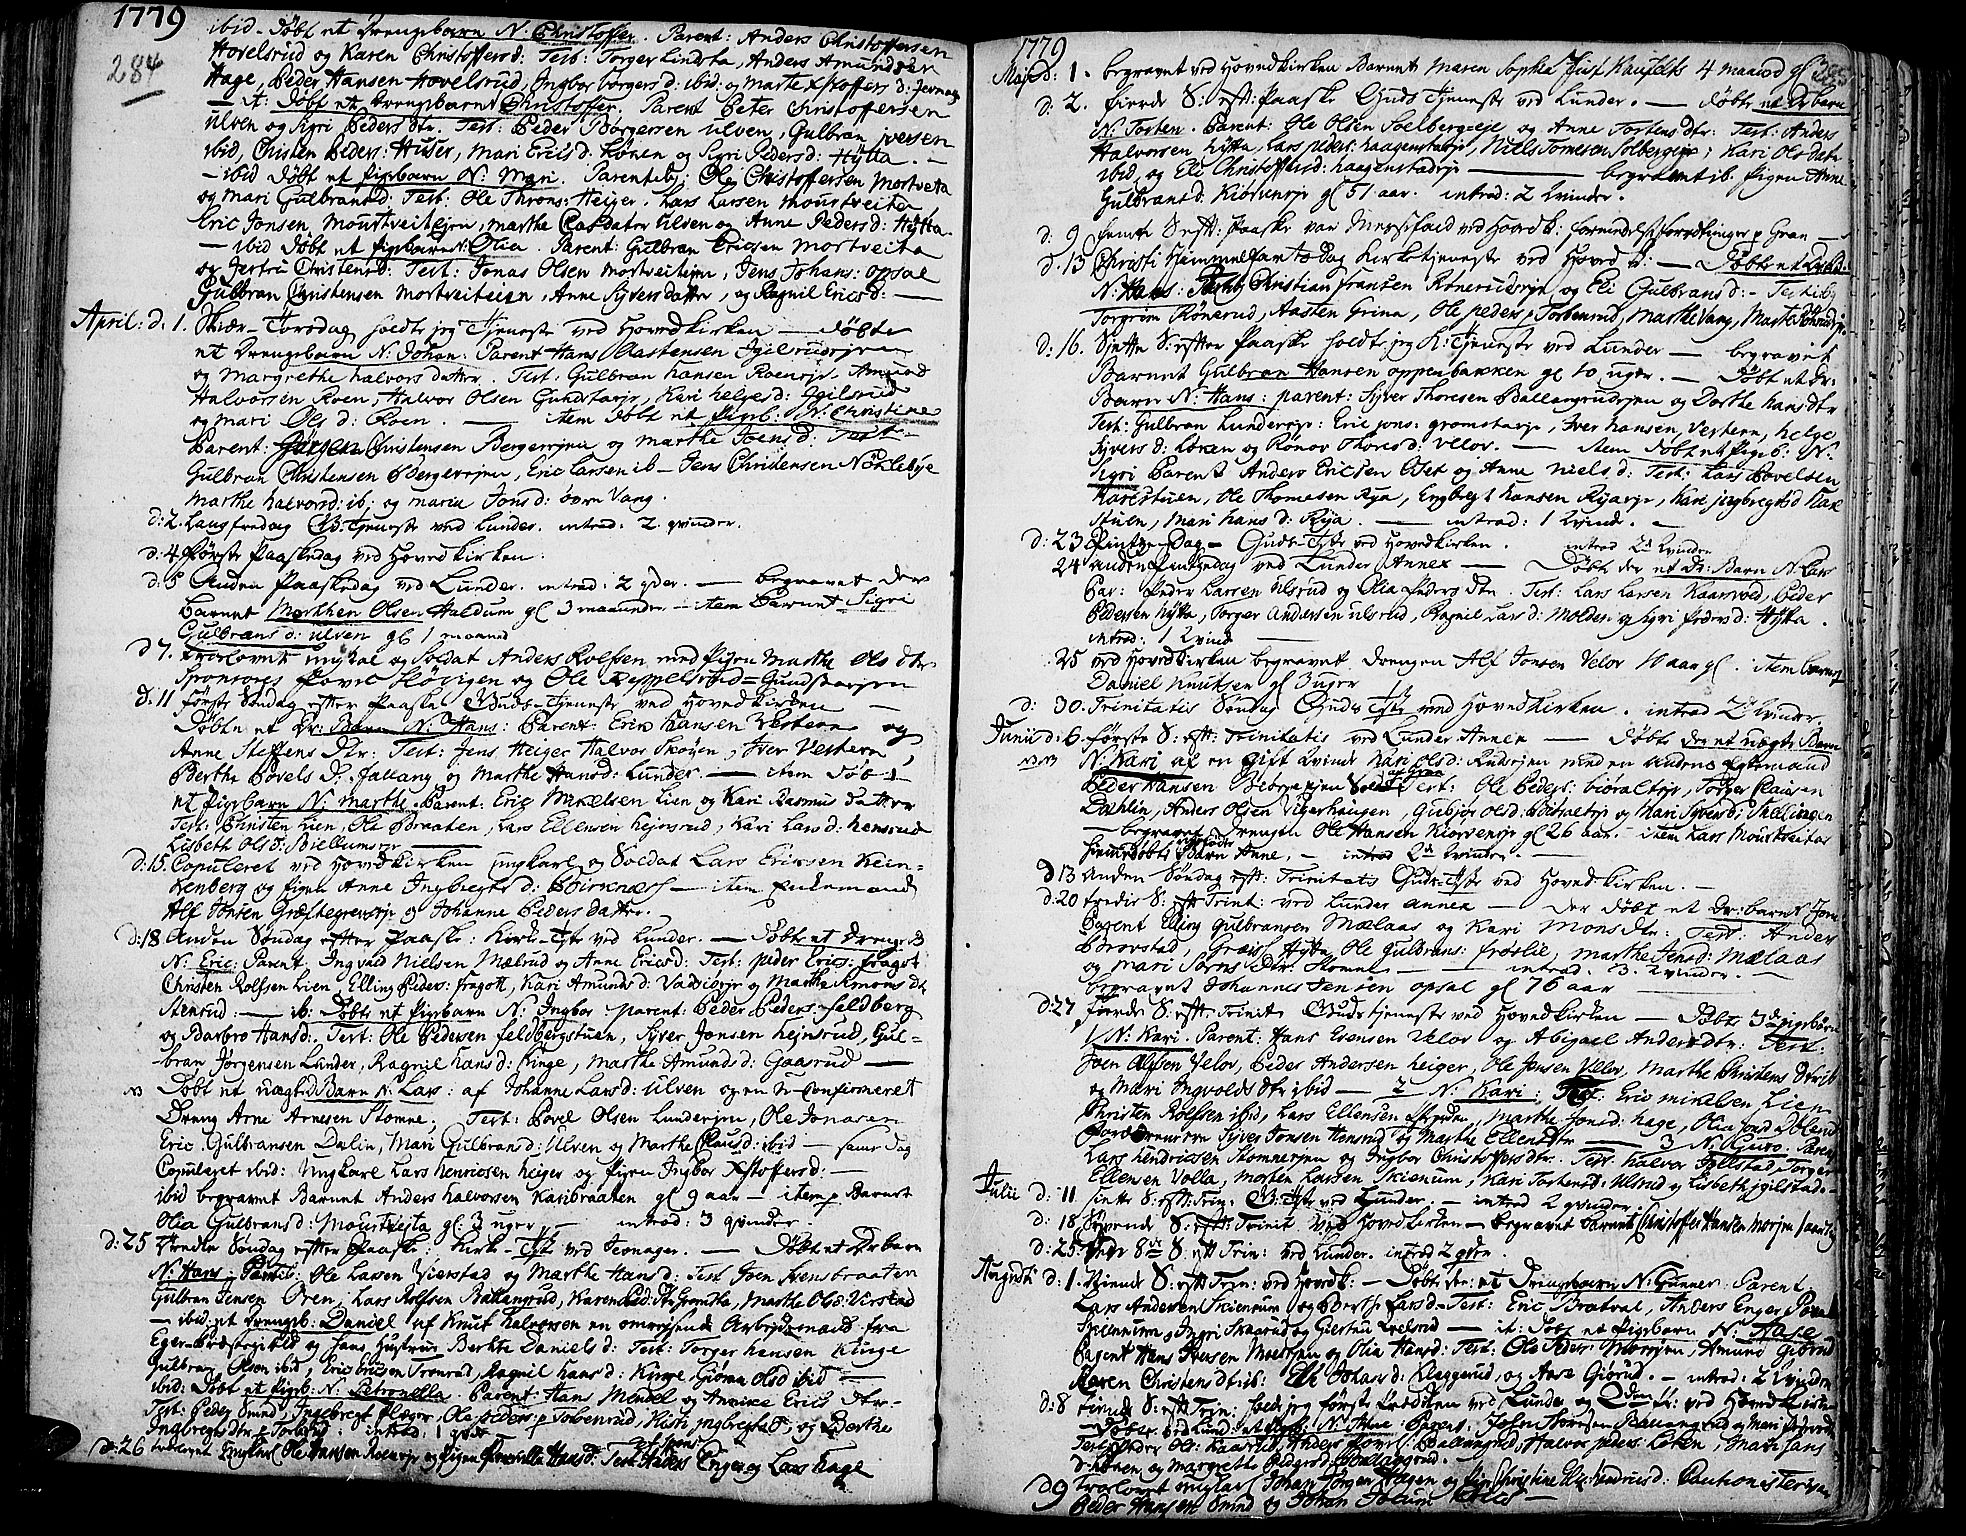 1779
284
ibid. Døbt et Drengebarn N: Christoffer. Parent: Anders Christoffersen
Hovelsrud og Karen Christoffersd: Test: Torger Lindsta, Anders Amundsen
Hage, Peder Hansen Hovelsrud, Ingbor Torgersd: ibid: og Marte Xstoffers d:
— it: Døbt et Drengebarnet Christoffer. Parent Peter Christoffersen
Ulven og Sigri Peders dtr. Test: Peder Børgersen Ulven, Gulbran Iversen
ibid, Christen Peders: Huser, Mari Ericsd: Kønen og Sigri Pedersd: Hÿtta. —
— ibid Døbt et Pigebarn N. Mari. Parent: Ole Christoffersen Mortveta
og Mari Gulbransd: Test: Ole Throns: Heiger. Lars Larsen Mourtveiten
Eric Jonsen, Mourtveitejen, Marthe Clasdatter Ulven og Anne Pedersd: Hÿtta
— ibid Døbt et Pigebarn N: Olia. Parent: Gulbran Ericsen Mortveita
og Jertru Christensd: Test: Jonas Olsen Mortveitejen, Jens Johans: Opsal
Gulbran Christensen Mortveiteien, Anne Syversdatter, og Ragnil Ericsd: —
April: d: 1. Skiær-Torsdag holdte jeg Tjeneste ved Hovedkirken — Døbte
et Drengebarn N: Johan: Parent Hans Aastensen Igilsrudejen
og Margrethe Halvorsdatter. Test: Gulbran Hansen Roenejr. Amund
Halvorsen Roen, Halvor Olsen Gundstarjr, Kari Helgesd: Igilsrud
og Mari Ols d: Roen. — item Døbt et Pigeb: N: Christine
Parent: Jørgen Christensen Bergerejen og Marthe Joens d: Test:
Gulbran Christensen Bergerejen, Eric Larsen ib — Jens Christensen Nøklebÿe
Marthe Halvorsd: ib, og Maria Jonsd: øvre Vang.
d: 2. Langfredag G: Tjeneste ved Lunder. introd: 2 qvinder.
d: 4 Første Paaskedag ved Hovedkirken.
d: 5 Anden Paaskedag ved Lunder. introd: 2 qder. — begravet der
Barnet Marthen Olsen Haldum gl 3 maaneder — item Barnet Sigri
Gulbransd: Ulven gl 1 maaned
d 7. Trolovet ungkal og Soldat Anders Rolfsen med Pigen Marthe Ols dtr
Sponsores Povel Skøvigen og Ole = Gundstarjen
d: 11 Første Søndag efter Paaske Guds-Tjeneste ved Hovedkirken —
Døbte et Dr: Barn N: Hans: Parent: Eric Hansen Vestern og
Anne Steffens Dtr: Test: Jens Heiger Halvor Skoyen, Iver Vestern,
Berthe Povels D: Jallang og Marthe Hansd: Lunder. — item Døbt
et Pigebarn N: Marthe. Parent: Eric Mikelsen Lien og Kari Rasmusdatter
Test: Christen Lien, Ole Braaten, Lars Ellensen Hejnsrud, Kari Larsd: Hensrud
Lisbeth Olsd: Biellumsejr
d: 15. Copuleret ved Hovedkirken ungkarl og Soldat Lars Ericsen Klin-
kenberg og Pigen Anne Ingbregts d: Birknæss — item Enkemand
Alf Jonsen Græsthegrensejr og Johanne Pedersdatter.
d: 18 Anden Søndag efter Paaske: Kirke-Tste ved Lunder. — Døbte et Drengeb
N: Eric: Parent Ingvald Nielsen Mælrud og Anne Ericsd: Test: Peder Erics: Fragot
Christen Rolfsen Lien, Elling Peders: Fragott, Kari Amunds d: Valdiørjr og Marthe Simons dt
Stensrud: — ib: Døbt et Pigebarn N: Ingbor Parent: Peder Peders: Feldberg
og Barbro Hansd: Test: Ole Pedersen Feldbergstuen, Syver Jonsen Hejnsrud, Gul-
bran Jørgensen Lunder, Ragnil Hansd: Kinge, Marthe Amunds d: Gaasrud —
Døbt et uægted Barn N: Lars: af Johanne Larsd: Ulven og en u-Confirmeret
Dreng Arne Arnesen Stomne; Test: Povel Olsen Lunderejen, Ole Jonasen
Eric: Gulbransen Dalin, Mari Gulbransd: Ulven og Marthe Clausd: ibid — samme Dag
Copuleret ibid: Ungkarl Lars Henricsen Heiger og Pigen Ingbor Xstoffersd: —
ibid begravet Barnet Anders Halvorsen Karibraaten gl 9 aar — item Barnet
Olia Gulbransd: Mourtveita gl: 3 uger — introd: 3 qvinder.
d: 25 Tredie Søndag efter Paaske: Kirk-Tste ved Jevnager. — Døbt et Dr barn
N. Hans: Parent: Ole Larsen Vierstad og Marthe Hansd: Test Joen Svensbraaten
Gulbran Jensen Oren, Lars Rolfsen Ballangrud, Karen Ped: Dtr Gromstta, Marthe Ols: Virstad
— ibid: et Drengeb: Daniel af Knut Halvorsen en omrejsende Arbejdsmand fra
Eger Præstegield og hans Hustrue Berthe Daniels d: Test: Torger Hansen Kinge
Gulbran Olsen ibid, Eric Ericsen Tronrud, Ragnil Hans d: Kinge, Gjøren Olsd ibid —
ibid: Døbt et Pigeb: N: Petronella. Parent: Hans Mendel og Annike Erics dtr —
Test: Peder Smed, Ingebregt Plæger, Ole Peders: p Torbenrud, Kirsti Ingbregtsd:, og Berthe
Ingbregtsdtr p Torbenrud: introd: 1 qvinde
d: 26 Trolovet Ungkarl Ole Hansen Roenejr og Pigen Pernille Hansd: Test: Anders Enger og Lars Hage

1779
285
Maji d: 1. begravet ved Hovedkirken Barnet Maren Sophia Just Kaufeldts 4 maaned gl
d: 2. Fierde S: eft: Paaske Guds Tjeneste ved Lunder. — Døbte et Dr barn
N: Tosten. Parent: Ole Olsen Soelbergeje og Anne Tostensdtr: Test: Anders
Halvorsen Hÿtta, Lars Peders: Haagenstadejr, Niels Tomesen Solbergejr; Kari Olsdatr
ibid, og Eli Christoffersd: Haagenstadejr — begravet ib. Pigen Anne
Gulbransd. Kiorvensejr gl 51 aar. introd: 2 kvinder.
d: 9 Femte S: eft: Paaske var Messefald ved Hovedk: formedelst forretninger p Gran —
d: 13 Christi Himmelfarts Dag Kirketjeneste ved Hovedk: — Døbte et Dreb.
N: Hans: Parent Christian Fransen Rønerudejr og Eli Gulbransd: — Testib:
Torgrim Rønerud, Aasten Grina, Ole Peders p Torbenrud, Marthe Vang, Marthe Rønerudejr.
d: 16. Siette S: efter Paaske holdt jeg K: Tjeneste ved Lunder — begravet
Barnet Gulbran Hansen Oppenbakken gl 10 uger. — Døbt et Dr:
Barn N: Hans: parent: Syver Thoresen Ballangrudejen og Dorthe Hansdtr
Test: Gulbran Lunderejr: Eric Jons: Gromstadejr, Iver Hansen, Vestern, Helge
Syvers d: Løken og Rønov Thoresd: Velov. — item Døbt et Pigeb: N:
Sigri Parent Anders Ericsen Oset og Anne Niels d: Test: Lars Povelsen
Karistuen, Ole Thomesen Rya, Engbregt Hansen Ryaejr, Kari Ingbregtsd
stuen, Mari Hans d: Rya. — introd: 1 kvind. —
d: 23 Pintze-Dag — Guds-Tste ved Hovedkirken. introd 2de kvinder
24 Anden Pintzedag ved Lunder Annex — Døbt der et Dr: Barn N: Lars
Par: Peder Larsen Ulsrud og Olia Peders dtr. Test: Lars Larsen Kaarvod, Peder
Pedersen Hÿtta, Torger Andersen Ulsrud, Ragnil Lars d: Molden og Sigri Pedersd: Hÿtta.
introd: 1 kvind —
25 ved Hovedkirken begravet Drengen Alf Jonsen Velov 10 aar gl. item Barnet
Daniel Knutsen gl 3 uger
d: 30. Trinitatis Søndag Guds Tste ved Hovedkirken. introd 2de kvinder.
Junii d: 6. Første S: eft: Trinitatis ved Lunder Annex — Døbt der et uægte Barn
N: Kari af en Gift kvinde Kari Olsd: Ruds ejen med en anden Egtemand
Peder Hansen Biørgejen Soldat af Gran Test: Ole Peders: Bioraltejr, Torger Clausen
Dahlin, Anders Olsen Vegerhaugen, Gubiør Olsd: og Mari Syversd:
— begravet Drengen Ole Hansen Kiorvensejr gl 26 aar. — item Lars Mourtveitas
hiemmedøbte Barn Anne, — introd 2de kvinder. —
d 13 Anden Søndag eft: Trinitatis Guds-Tste ved Hovedkirken. —
d. 20 Tredie S: eft Trinit: ved Lunder Annex — Der døbt et Dr: barnet Jon
Parent Elling Gulbransen Mælaas og Kari Monsdtr: Test: Anders
Børrestad, Hÿtta Ole Gulbrans: Froslie, Marthe Jensd: Mælaas
og Mari Sørns Dtr: Stomne — introd. 3. kvinder. —
begravet Johannes Jensen Opsal gl 76 aar —
d: 27 Fierde S: eft Trinit: Gudstjeneste ved Hovedkirken — Døbt 3de Pigebørn
1 N: Kari. Parent: Hans Evensen Velov og Abigael Andersdtr: Test:
Joen Alfsøn Velov, Peder Andersen Heiger, Ole Jensen Vellov, Marthe Christens Dtr ib
og Mari Ingvolds Dtr ibid — 2 N: Kari; Test: Eric Mikelsen, Lien
Christen Rolfsen ibid, Lars Ellensen Struden, Marthe Jonsd: Hage, Olia
Forældrene ere Syver Jonsen Hensrud og Marthe Ellensdtr — 3 N: Guro. Parent
Lars Hendricsen Stomnerejen og Ingbor Christoffersdtr: Test: Halvor Fjeldstad, Torger
Ellensen Volla, Morten Larsen Skienum, Kari Tostensd: Ulsrud og Lisbeth Igilstad.
Julii d: 11 Siette S: eft: Trin: G: Tste ved Lunder. — introd 2 qvinder
d: 18. Syvende S: eft: Trinit ved Hovedkirken — begravet Barnet Christoffer Hansen Morjen 1 aar
d: 25. 8de S: eft Trin: ved Lunder. introd 2 qvdr.
Augusti d: 1. Niende S: eft Trin: ved Hovedk: — Døbt der: et Drengebarn N: Gunner. Parent
Lars Andersen Skienum og Berthe Larsd — Test: Eric Bratval, Anders Enger Povel
Skiennum, Ingri Skaarud og Giertru Loelsrud — it: Døbt et Pigebarn N: Aase
Parent Hans Ivensen Moerejen og Olia Hansd: Test: Ole Peders: Morejen, Amund Giørud
Karen Christensdtr ib: Eli Johansd: Klaggerud, og Aase Giørud. — introd: 2 kvinder
d: 8 Tiende S: eft Trin: holdt jeg første Prædiken ved Lunder og 2den ved Hovedkirken
— Døbt ved Lund: et Pigeb: N: Anne. Parent: John Thoresen Ballangrud og Mari Pedersd:
Test: Peder Ols: Kaasrud, Anders Povels: Ballangrud, Halvor Peders: Løken, Mari Jens
d: Lønen og Margrethe Pedersd Ballangrud.
d 9 Trolovet ungkarl Johan Jørgen Hagen og Pigen Christine Elisabeth d: Cautionister
Peder Hansen Smed og Johan Jochum